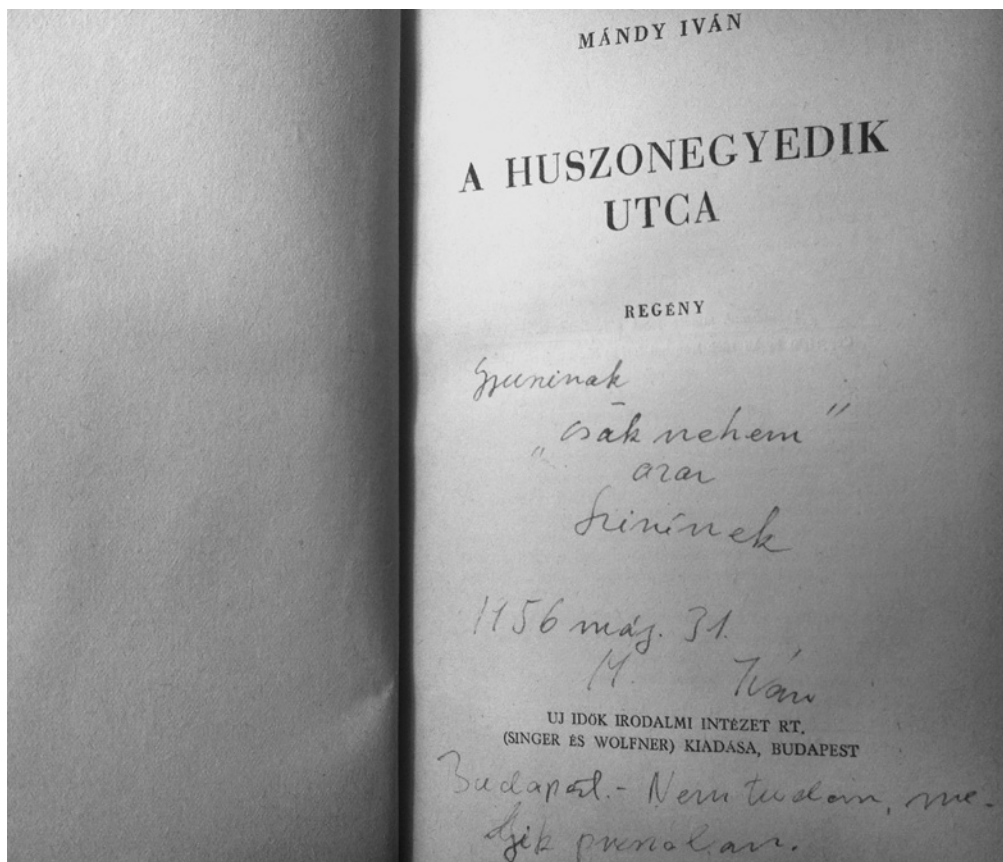 MÁNDY IVÁN
A HUSZONEGYEDIK
UTCA
REGÉNY
Gyuninak
„csak nehem”
azaz
Szininek
1956 máj. 31.
M. Iván
UJ IDŐK IRODALMI INTÉZET RT.
(SINGER ÉS WOLFNER) KIADÁSA, BUDAPEST
Budapest.- Nem tudom, me-
lyik